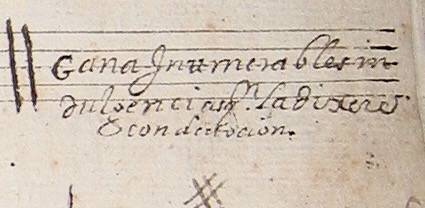 Gana Inumerables in
dulgencias qn. la dixere
con debocion.